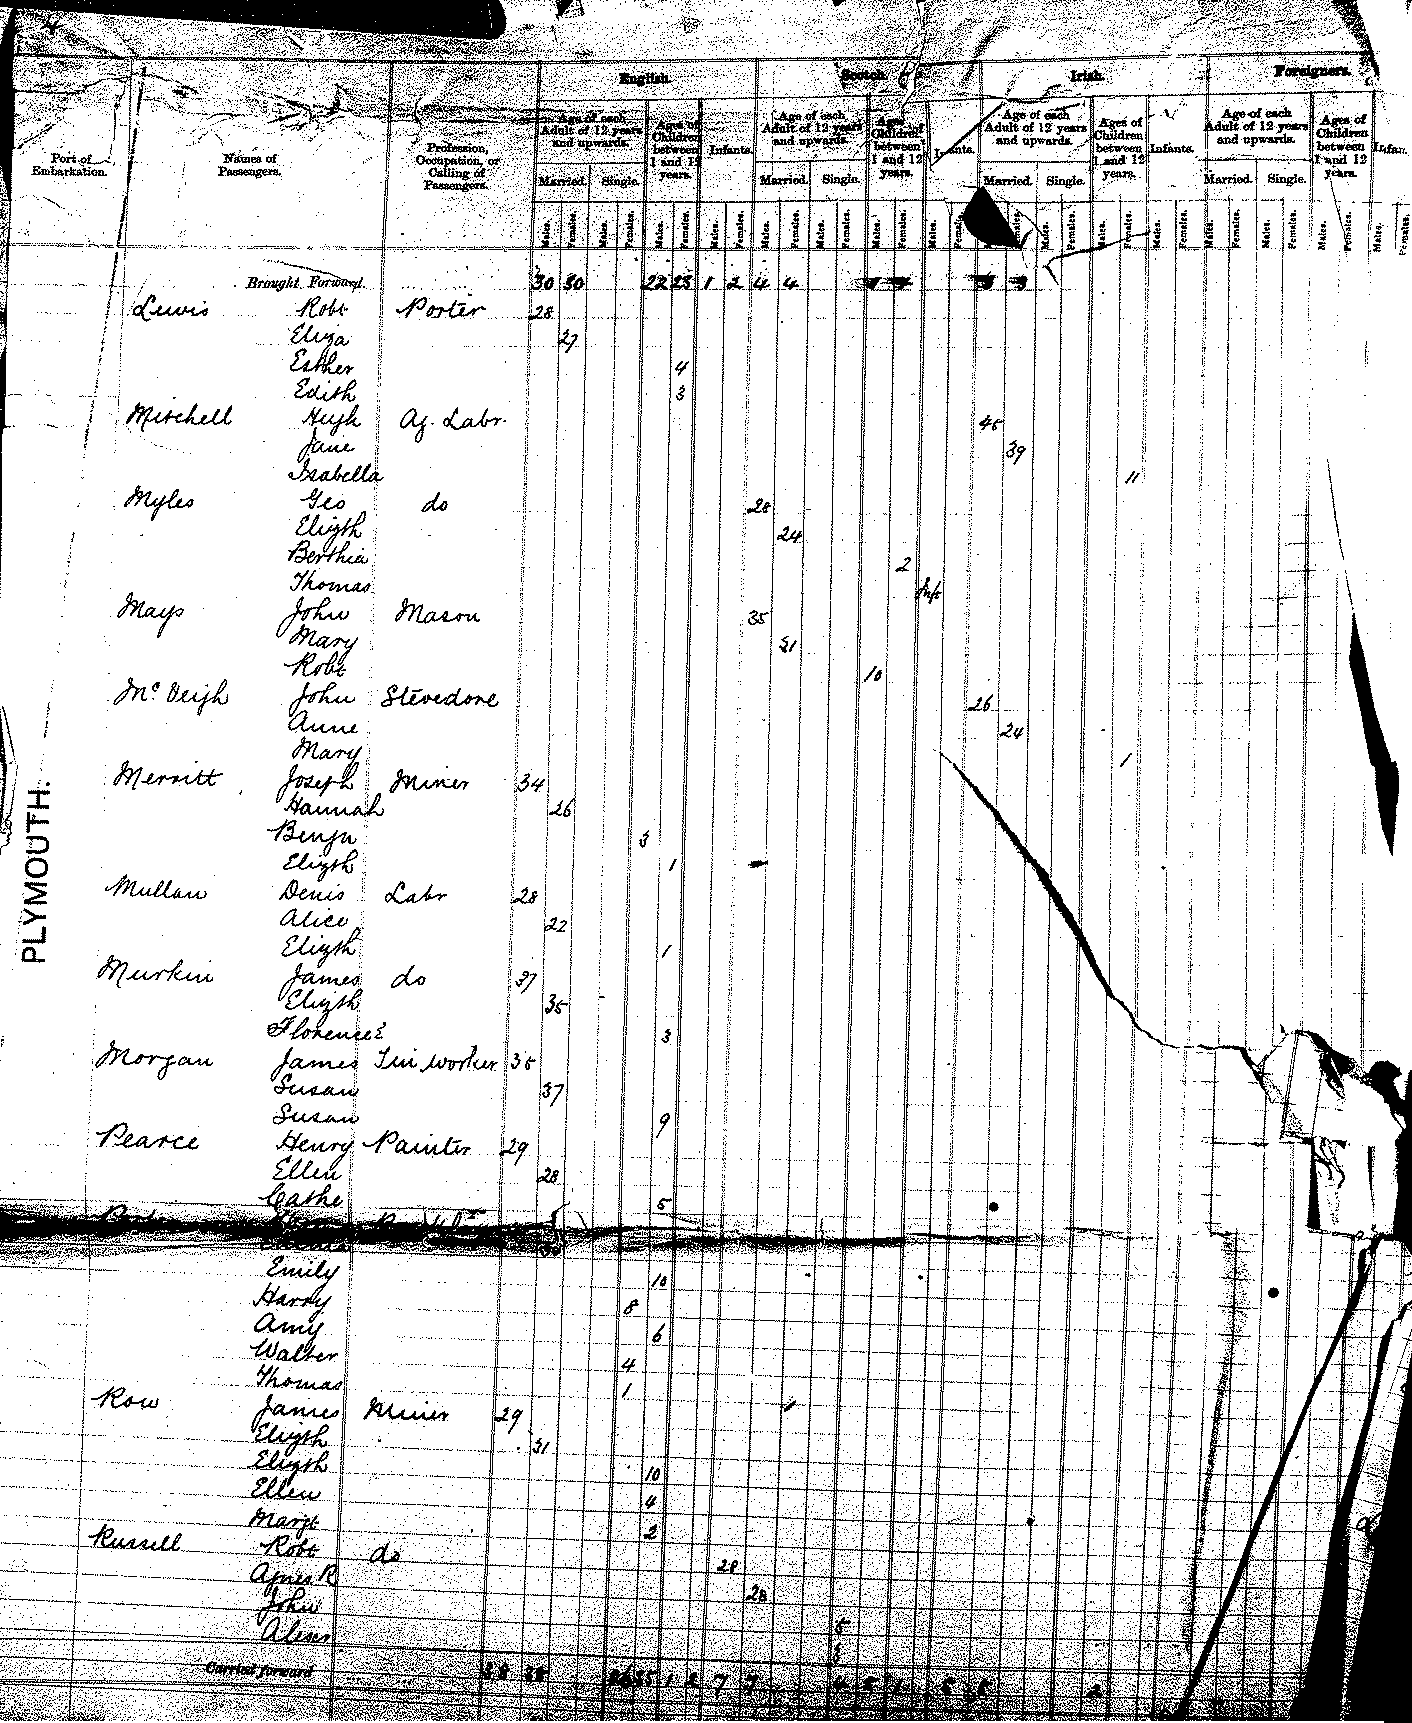 English. Scotch. Irish. Foreigners.
Port of Embarkation. Names of Passengers. Profession, Occupation, or Calling of Passengers.
Age of each Adult of 12 years and upwards. Ages of Children between 1 and 12 years. Infants. Age of each Adult of 12 years and upwards. Ages Children between 1 and 12 years. Infants. Age of each Adult of 12 years and upwards. Ages of Children between 1 and 12 years. Infants. Age of each Adult of 12 years and upwards. Ages of Children between 1 and 12 years. Infan
Married. Single. Married. Single. Married. Single. Married. Single.
Males. Females. Males. Females. Males. Females. Males. Females. Males. Females. Males. Females. Males. Females. Males. Females. Males. Females. Males. Females. Males. Females. Males. Females. Males. Females. Males. Females. Males. Females.
Brought Forward 30 30 22 23 1 2 4 4
Lewis Robt Porter 28
Eliza 27
Esther 4
Edith 3
Mitchell Hugh Ag. Labr. 45
Jane 39
Isabella 11
Myles Geo do 28
Elizth 24
Berthia 2
Thomas Inft
Mays John Mason 35
Mary 31
Robt 10
McVeigh John Stevedore 26
Anne 24
Mary 1
Merritt Joseph Miner 34
Hannah 26
Benjn 3
Elizth 1
Mullan Denis Labr 28
Alice 22
Elizth 1
Murkin James do 37
Elizth 35
Florence E 3
Morgan James Tin worker 35
Susan 37
Susan 9
Pearce Henry Painter 29
Ellen 28
Cathe 5
Emily 10
Harry 8
Amy 6
Walter 4
Thomas 1
Row James Miner 29
Elizth 31
Elizth 10
Ellen 4
Margt 2
Russell Robt do 28
Agnes R 28
John 5
Alison
Carried forward 38 38 26 35 1 2 7 7 5 1 5 2
PLYMOUTH.